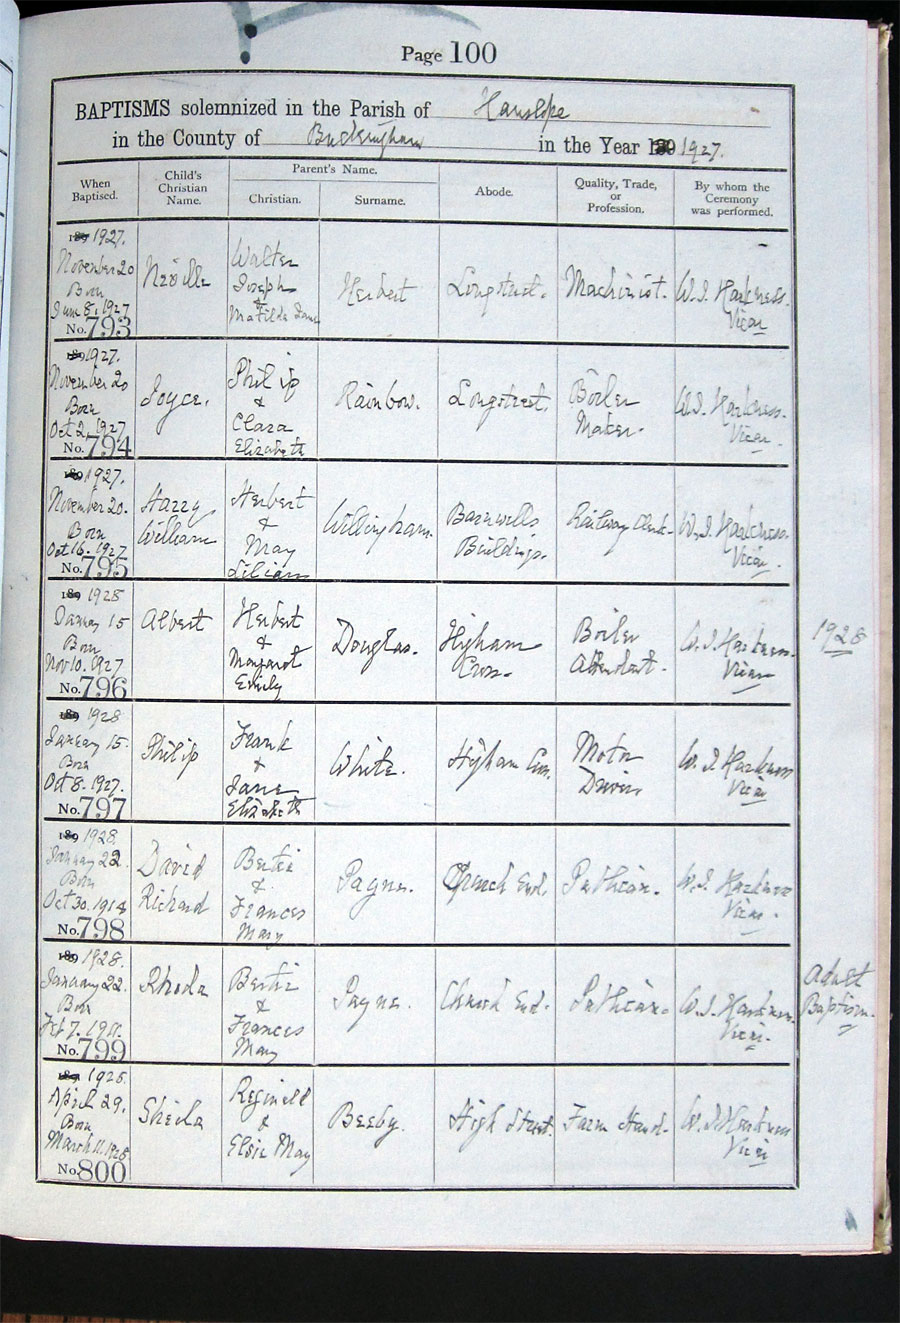 Page 100
BAPTISMS solemnized in the Parish of Hanslope
in the County of Buckingham in the Year 189 1927.
When Baptised.
Child's Christian Name.
Parent's Name.
Christian.
Surname.
Abode.
Quality, Trade, or Profession.
By whom the Ceremony was performed.
189 1927.
November 20
Born
June 8. 1927
No. 793
Neville
Walter
Joseph
&
Matilda Jane
Herbert
Longstreet.
Machinist.
W.J. Harkness.
Vicar
189 1927.
November 20
Born
Oct 2. 1927
No. 794
Joyce.
Philip
&
Clara
Elizabeth
Rainbow.
Longstreet.
Boiler
Maker.
W.J. Harkness.
Vicar.
189 1927.
November 20.
Born
Oct 16. 1927
No. 795
Harry
William
Herbert
&
May
Lilian
Willingham.
Barnwells
Buildings.
Railway Clerk.
W.J. Harkness.
Vicar.
189 1928
January 15
Born
Nov 10. 1927
No. 796
Albert
Herbert
&
Margaret
Emily
Douglas.
Higham
Cross.
Boiler
Attendant.
W.J. Harkness.
Vicar
1928
189 1928
January 15.
Born
Oct 8. 1927.
No. 797
Philip
Frank
&
Jane
Elizabeth
White.
Higham Cross.
Motor
Driver
W.J. Harkness
Vicar
189 1928.
January 22.
Born
Oct 30.
No. 798
David
Richard
Bertie
&
Frances
Mary
Payne.
Church End.
W.J. Harkness
Vicar.
189 1928.
January 22.
Born
Feb 7. 1911.
No. 799
Rhoda
Bertie
&
Frances
Mary
Payne.
Church End.
W.J. Harkness.
Vicar.
Adult
Baptism.
189 1928.
April 29.
Born
March 11. 1928
No. 800
Sheila
Reginald
&
Elsie May
Beeby.
High Street.
Farm Hand.
W.J. Harkness
Vicar